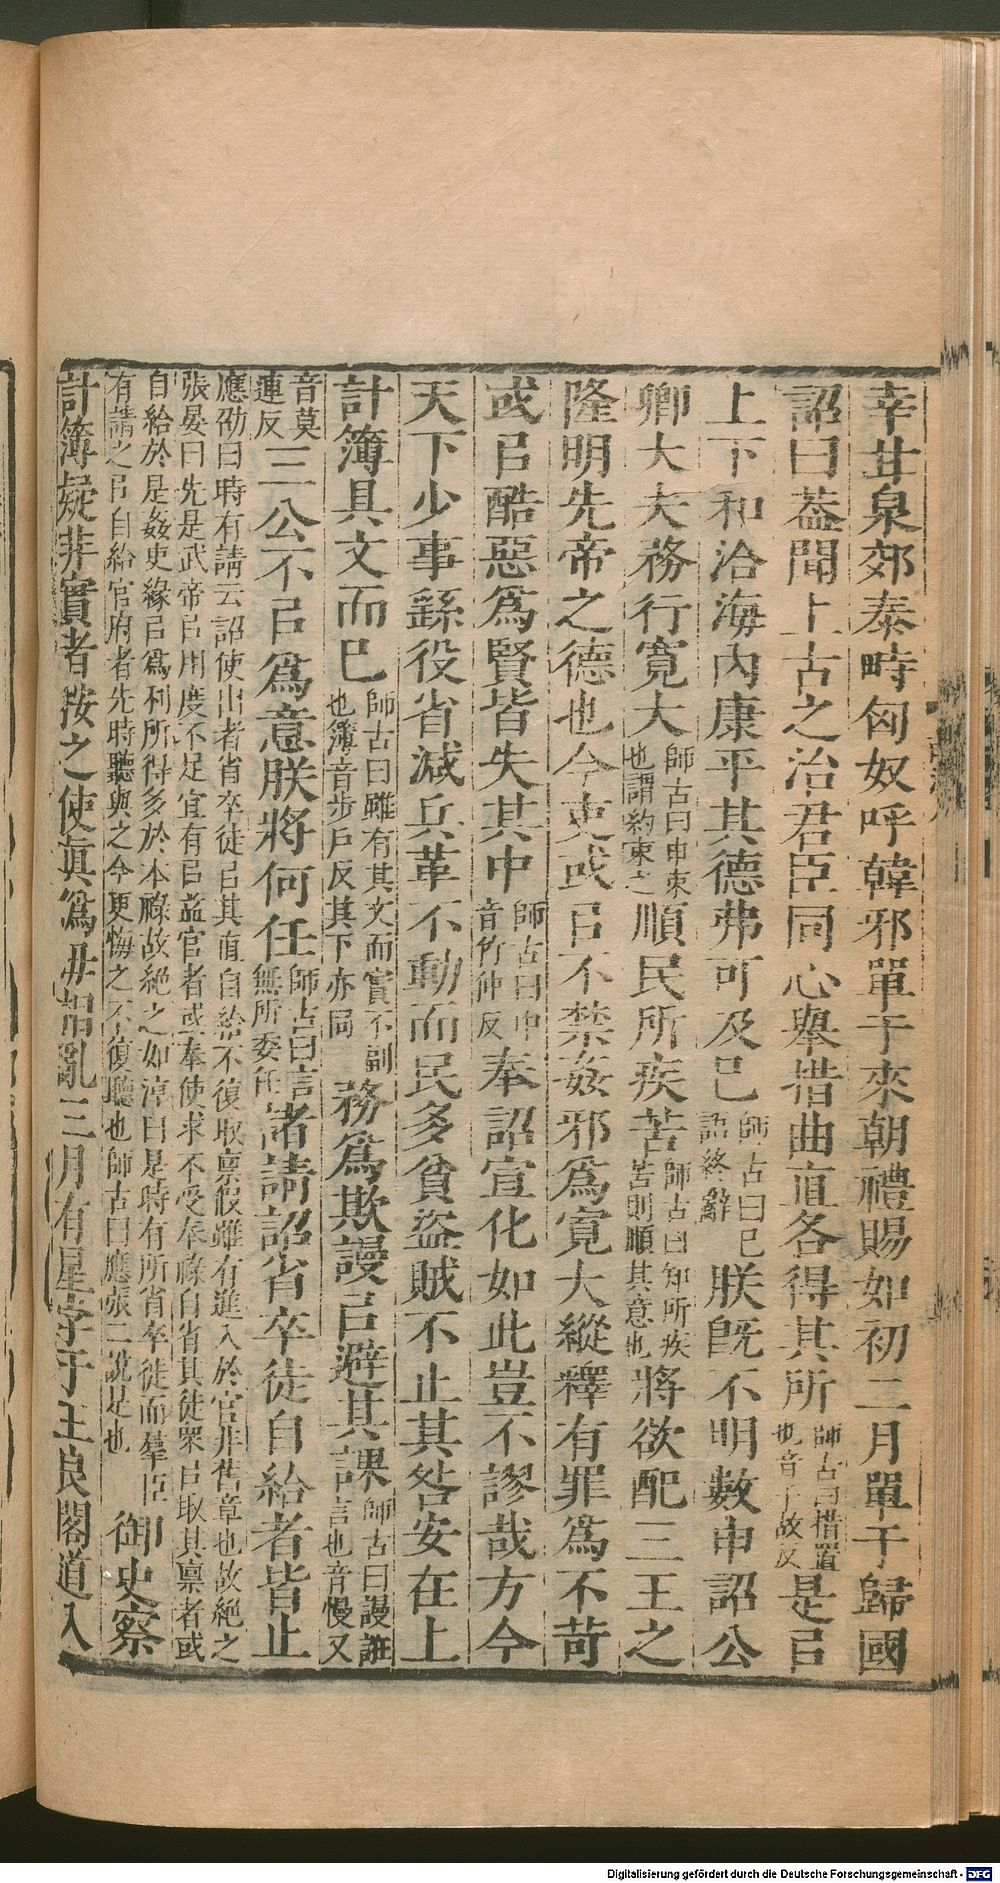 幸甘泉郊泰畤匈奴呼韓邪單于來朝禮賜如初二月單于歸國
詔曰葢聞上古之治君臣同心舉措曲直各得其所師古曰措置也音千故反是㠯
上下和洽海內康平其德弗可及已師古曰已語終辭朕旣不明數申詔公
卿大夫務行寛大師古曰申束也謂約束之順民所疾苦師古曰知所疾苦則順其意也將欲配三王之
隆明先帝之德也今吏或㠯不禁姦邪爲寛大縱釋有罪爲不苛
或㠯酷惡爲賢皆失其中師古曰中音竹仲反奉詔宣化如此豈不謬哉方今
天下少事繇役省減兵革不動而民多貧盜賊不止其咎安在上
計簿具文而已師古曰雖有其文而實不副也簿音步戶反其下亦同務爲欺謾㠯避其課師古曰謾誑言也音慢又
音莫連反三公不㠯爲意朕將何任師古曰言無所委任諸請詔省卒徒自給者皆止
應劭曰時有請云詔使出者省卒徒㠯其直自給不復取禀假雖有進入於官非舊章也故絶之
張晏曰先是武帝㠯用度不足宜有㠯益官者或奉使求不受奉祿自省其徒衆㠯取其禀者或
自給於是姦吏緣㠯爲利所得多於本祿故絶之如淳曰是時有所省卒徒而羣臣
有請之㠯自給官府者先時聽與之今更悔之不復聽也師古曰應張二說是也御史察
計簿疑非實者按之使眞爲毋相亂三月有星孛于王良閣道入
Digitalisierung gefördert durch die Deutsche Forschungsgemeinschaft - DFG